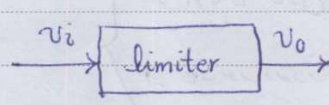 vi
limiter
vo